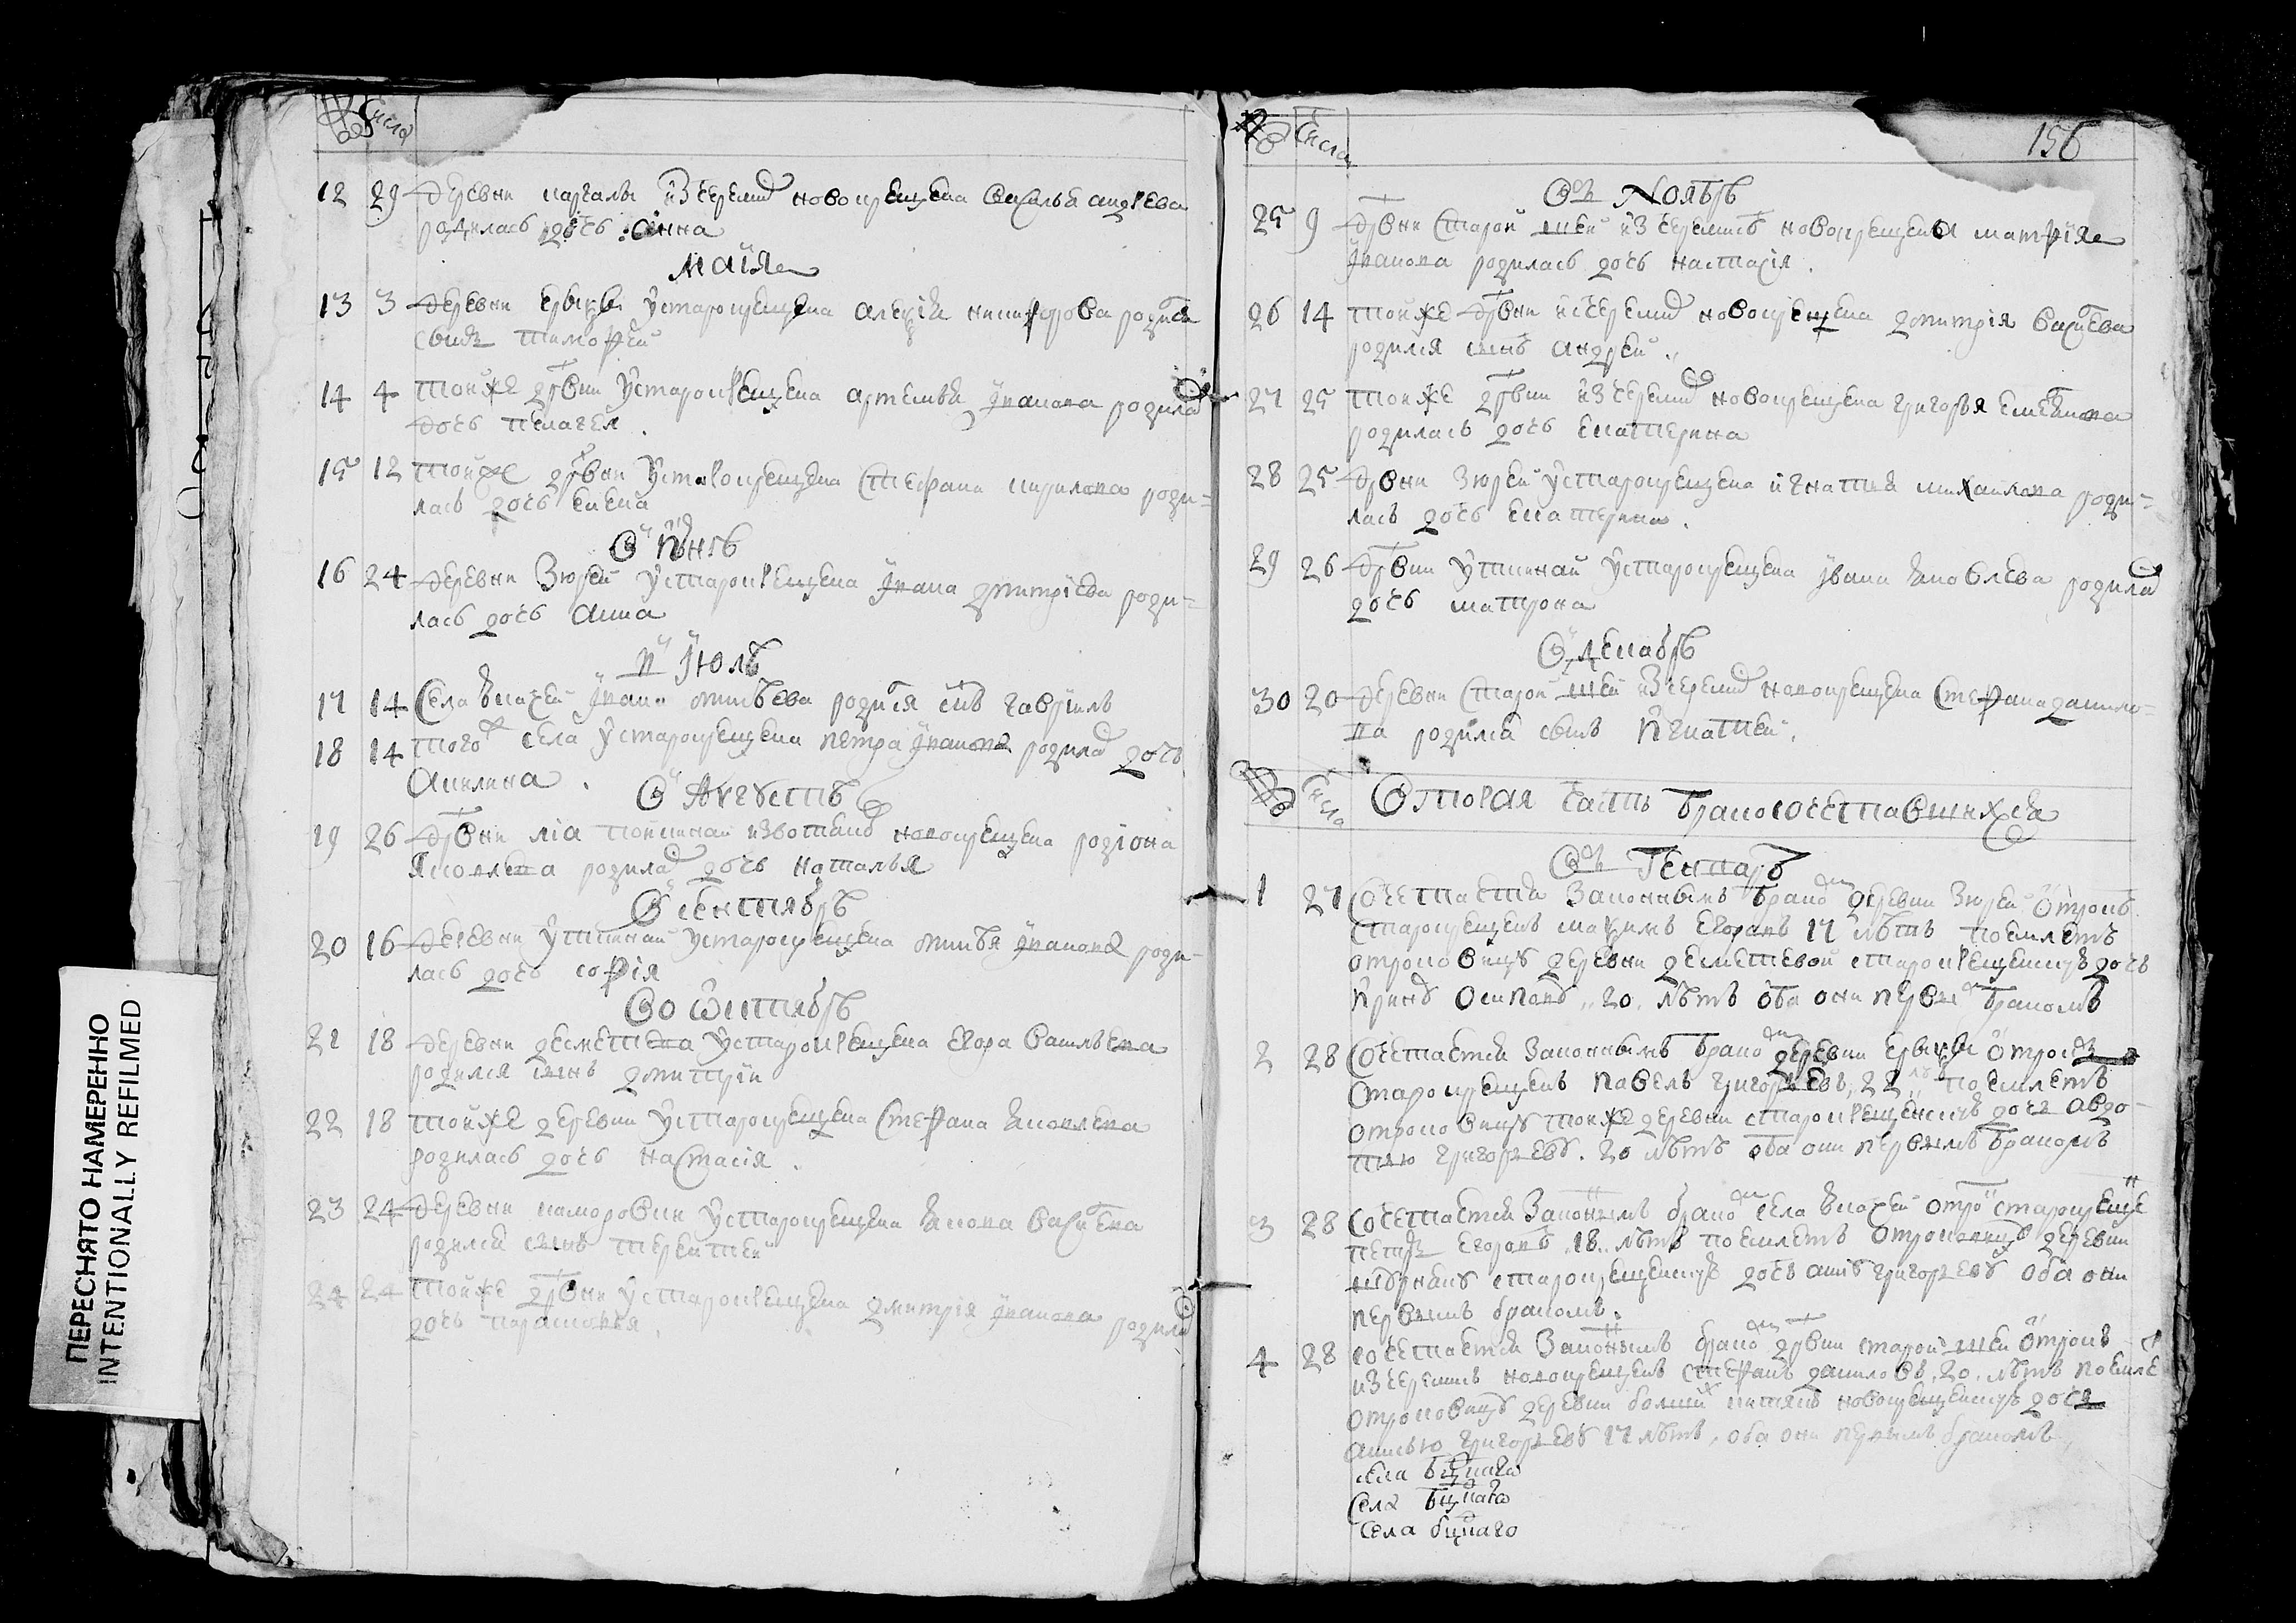 № Числа
12 29 деревни изчеремис новокрещена Василья андреева
родилась дочь анна
маия
13 3 деревни Ерыксы устарокрещена алексея никифорова родился
сынъ тимофей
14 4 тойже дрвни устарокрещена артемья Иванова родилас
дочь пелагея
15 12 тойже дрвни устарокрещена Стефана кирилова роди-
лась дочь елена
В июнѣ
16 24 деревни Зюзей устарокрещена Ивана дмитриева роди-
лась дочь анна
В Июлѣ
17 14 Села Ивана родился снъ гавриилъ
18 14 того ж села устарокрещена петра Иванова родилас дочь
акилина
В Августѣ
19 26 дрвни извотяков новокрещена родиона
Яковлева родилас дочь наталья
В сентябрѣ
20 16 деревни Утчинай устарокрещена Иванова роди-
лась дочь софия
Во октябрѣ
21 18 деревни десметева устарокрещена Егора Васильева
родился сынъ дмитрий
22 18 тойже деревни устарокрещена Стефана Яковлева
родилась дочь настасия
23 24 деревни комаровки устарокрещена Якова Василева
родился сынъ терентей
24 24 тойже дрвни устарокрещена дмитрия Иванова родилас
дочь парасковья
156
№ Числа
В Ноябрѣ
25 9 дрвни Старой изчеремисъ новокрещена матфия
Иванова родилась дочь настасия
26 14 тойже дрвни исчеремис новокрещена дмитрия Василева
родился сынъ андрей
27 25 тойже дрвни изчеремис новокрещена григорья
родилась дочь екатерина
28 25 дрвни Зюзей устарокрещена игнатия михаилова роди-
лась дочь екатерина
29 26 дрвни Утчинай устарокрещена Ивана Яковлева родилас
дочь матрона
В декабрѣ
30 20 деревни Старой изчеремис новокрещена Стефана данило-
ва родился сынъ Игнатией
№ Числа Вторая часть бракосочетавшихся
В Генварѣ
1 27 Сочетается Законнымъ браком деревни Зюзей отрокъ
старокрещенъ максимъ Егоровъ 17 лѣтъ поемлетъ
отроковицу деревни десметевой старокрещенскую дочь
Ирину Осипову 20 лѣтъ оба они первымъ бракомъ
2 28 Сочетается Законнымъ браком деревни Ерыксы отрокъ
старокрещенъ павелъ григорьевъ 22 лѣтъ поемлетъ
отроковицу тойже деревни старокрещенскую дочь авдо-
тью григорьеву 20 лѣтъ оба они первымъ бракомъ
3 28 Сочетается Законнымъ браком села отрокъ старокрещенъ
петръ Егоровъ 18 лѣтъ поемлетъ отроковицу деревни
старокрещенскую дочь анну григорьеву оба они
первымъ бракомъ
4 28 сочетается Законнымъ браком дрвни старой отрокъ
изчеремисъ новокрещенъ стефанъ даниловъ 20 лѣтъ поемлетъ
отроковицу деревни болшой новокрещенскую дочь
григорьеву 17 лѣтъ оба они первымъ бракомъ
села
Села
села
ПЕРЕСНЯТО НАМЕРЕННО
INTENTIONALLY REFILMED